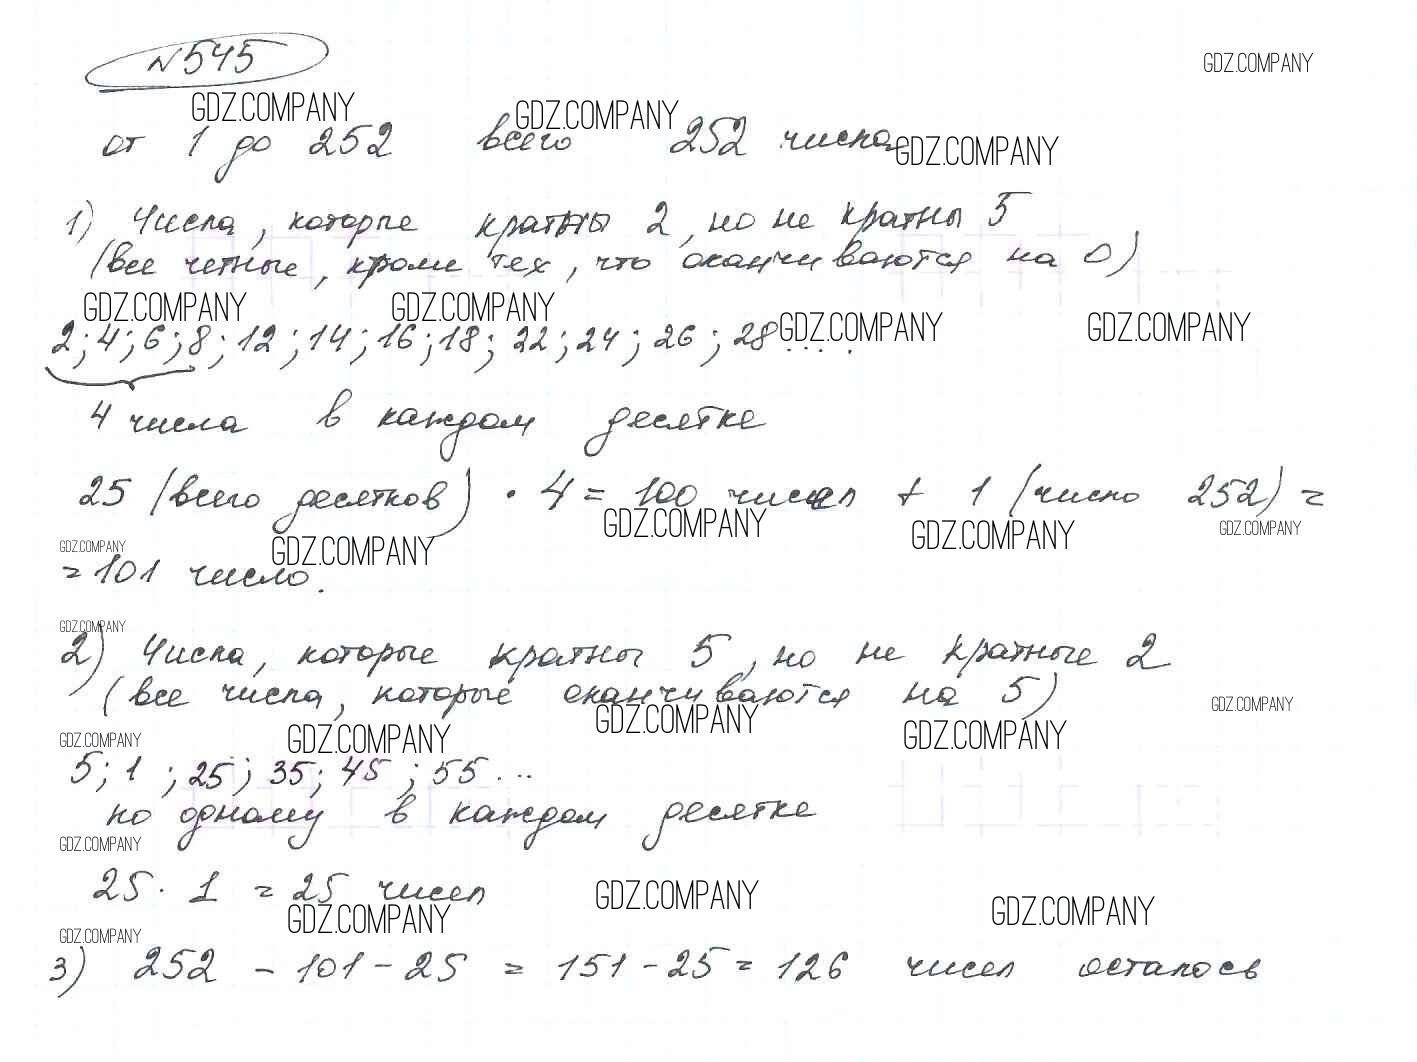 №545
GDZ.COMPANY
GDZ.COMPANY GDZ.COMPANY
от 1 до 252 всего 252 числа
GDZ.COMPANY
1) Числа, которые кратны 2, но не кратны 5
(все четные, кроме тех, что оканчиваются на 0)
GDZ.COMPANY GDZ.COMPANY
GDZ.COMPANY GDZ.COMPANY
2; 4; 6; 8; 12; 14; 16; 18; 22; 24; 26; 28....
4 числа в каждом десятке
25 (всего десятков) · 4 = 100 чисел + 1 (число 252) =
GDZ.COMPANY GDZ.COMPANY GDZ.COMPANY
GDZ.COMPANY GDZ.COMPANY
= 101 число.
GDZ.COMPANY
2) Числа, которые кратны 5, но не кратные 2
(все числа, которые оканчиваются на 5)
GDZ.COMPANY
GDZ.COMPANY GDZ.COMPANY GDZ.COMPANY GDZ.COMPANY
5; 1 ; 25; 35; 45; 55...
по одному в каждом десятке
GDZ.COMPANY
25 · 1 = 25 чисел
GDZ.COMPANY GDZ.COMPANY GDZ.COMPANY
GDZ.COMPANY
3) 252 - 101 - 25 = 151 - 25 = 126 чисел осталось